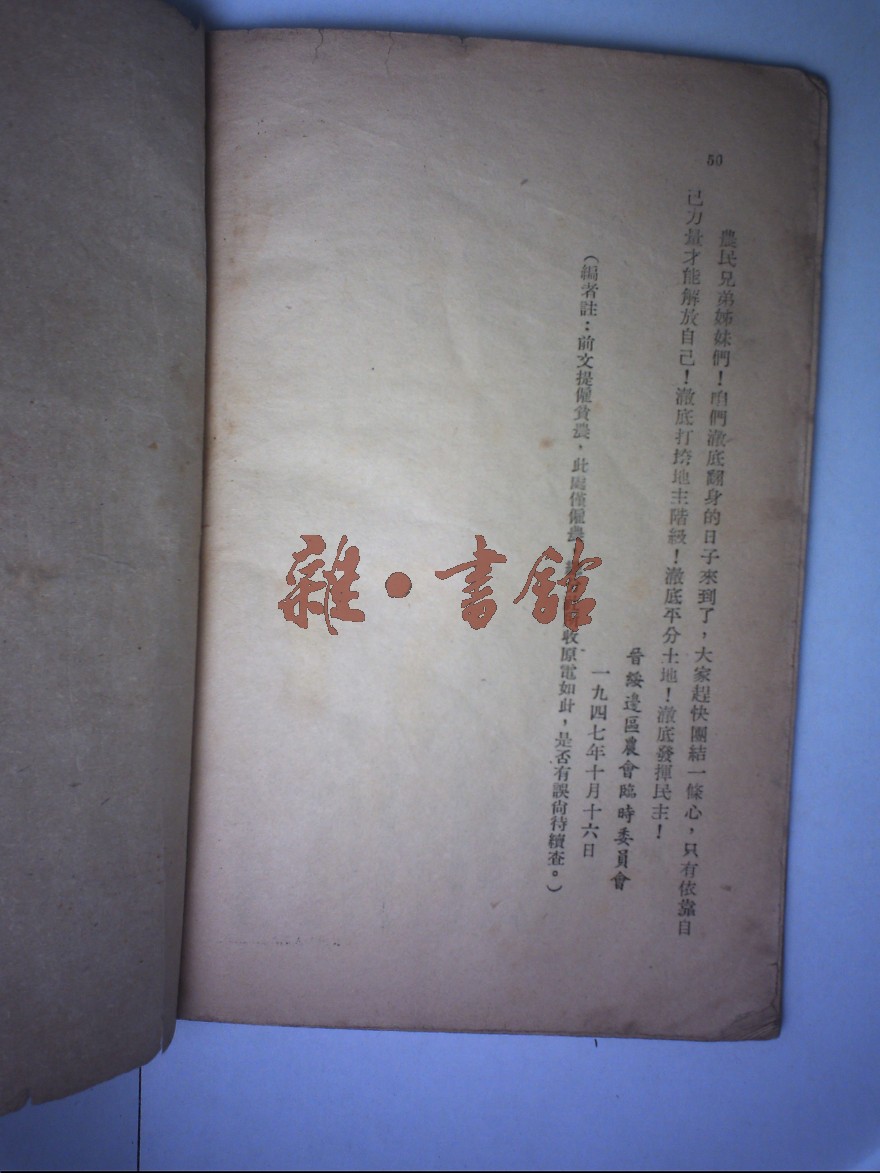 50
農民兄弟姊妹們！咱們澈底翻身的日子來到了，大家趕快團結一條心，只有依靠自
己力量才能解放自己！澈底打垮地主階級！澈底平分土地！澈底發揮民主！
晉綏邊區農會臨時委員會
一九四七年十月十六日
（編者註：前文提僱貧農，此處僅僱農 收原電如此，是否有誤尚待續查。）
雜·書館